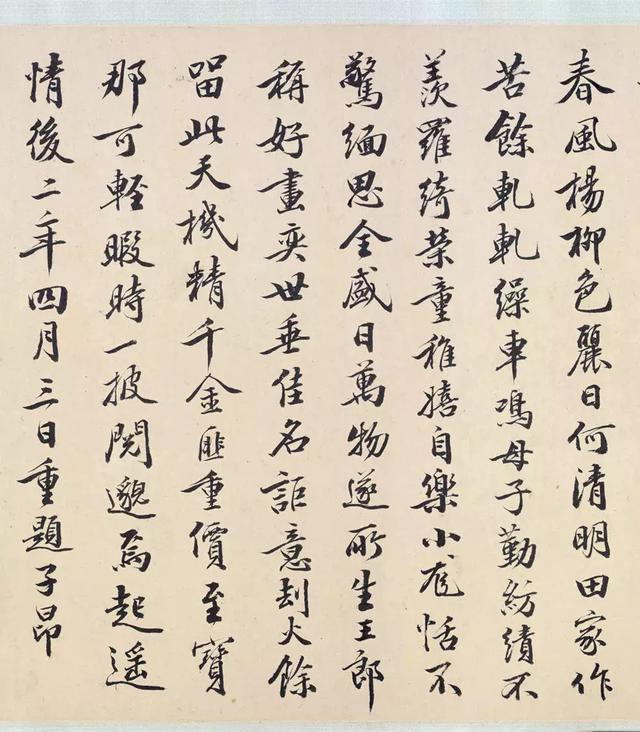 春風楊柳色麗日何清明田家作
苦餘軋軋繰車鳴母子勤紡績不
羨羅綺榮童稚嬉自樂小厖恬不
驚緬思全盛日萬物遂所生王郎
稱好畫奕世垂佳名詎意刧火餘
留此天機精千金匪重價至寶
那可輕暇時一披閱邈焉起遥
情後二年四月三日重題子昂